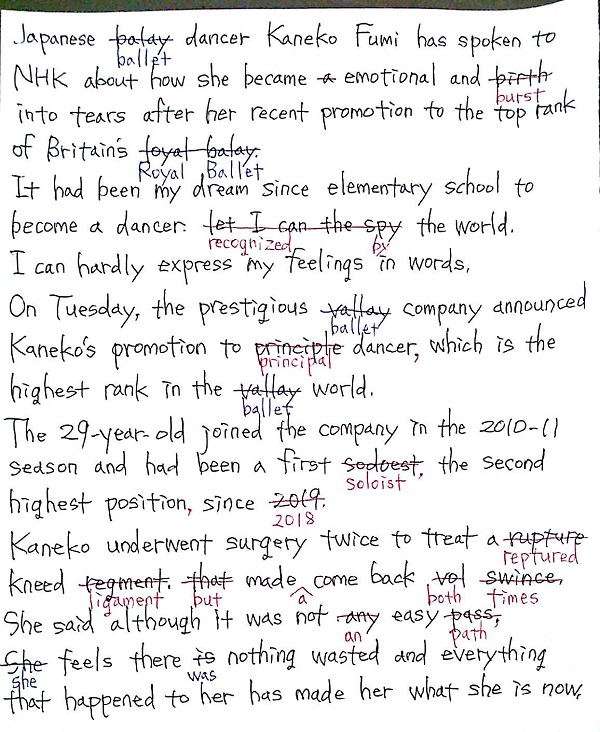 Japanese balay dancer Kaneko Fumi has spoken to
ballet
NHK about how she became a emotional and birth
burst
into tears after her recent promotion to the top rank
of Britain's foyal balay.
Royal Ballet
It had been my dream since elementary school to
become a dancer. let I can the spy the world.
recognized by
I can hardly express my feelings in words,
On Tuesday, the prestigious vallay company announced
ballet
Kaneko's promotion to principle dancer, which is the
principal
highest rank in the vallay world.
ballet
The 29-year-old joined the company in the 2010-11
season and had been a first sodoest, the second
soloist
highest position, since 2019.
2018
Kaneko underwent surgery twice to treat a rupture
reptured
kneed tegment. that made come back vol swince,
ligament but a both times
She said although it was not any easy pass,
an path
She feels there is nothing wasted and everything
she was
that happened to her has made her what she is now.